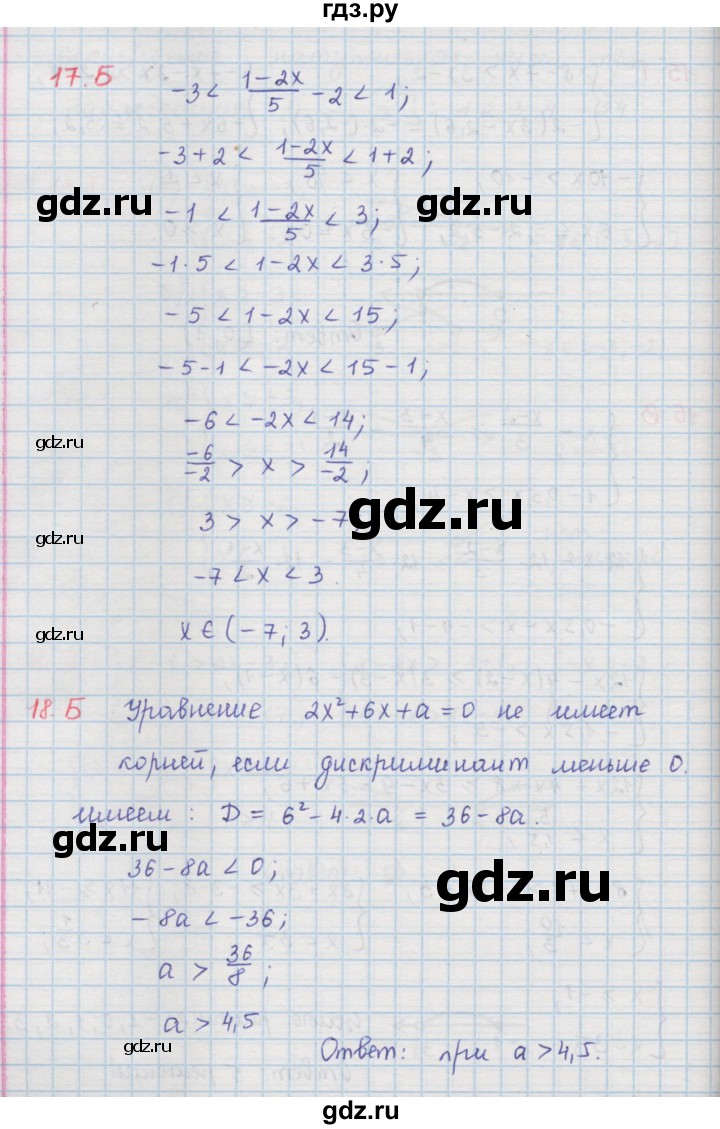 гдз.ру
17.Б -3 < (1-2x)/5 - 2 < 1;
-3+2 < (1-2x)/5 < 1+2;
gdz.ru gdz.ru
-1 < (1-2x)/5 < 3;
-1·5 < 1-2x < 3·5;
-5 < 1-2x < 15;
-5-1 < -2x < 15-1;
-6 < -2x < 14;
gdz.ru
-6/-2 > x > 14/-2;
gdz.ru
3 > x > -7
gdz.ru
-7 < x < 3.
x ∈ (-7; 3).
gdz.ru
18.Б Уравнение 2x²+6x+a=0 не имеет
корней, если дискриминант меньше 0.
имеем: D = 6²-4·2·a = 36-8a.
gdz.ru
36-8a < 0;
gdz.ru
-8a < -36;
a > 36/8;
a > 4,5
gdz.ru
Ответ: при a > 4,5.
gdz.ru